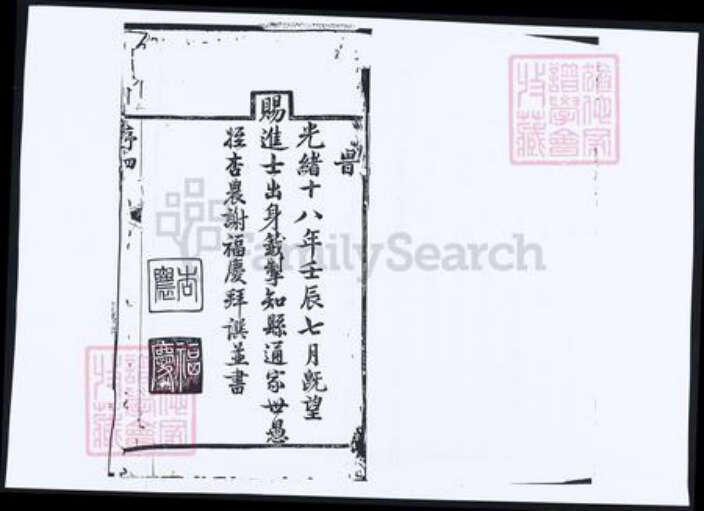 冑
光緒十八年壬辰七月既望
賜進士出身截掣知縣通家世愚
姪杏農謝福慶拜譔並書
杏農
福慶
序四
FamilySearch